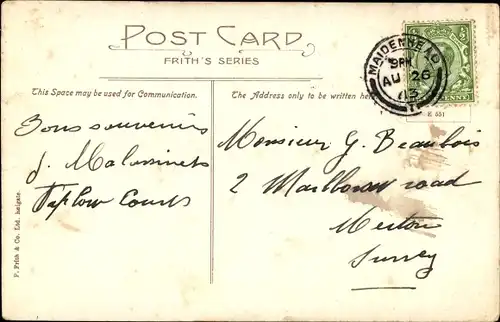 POST CARD
FRITH'S SERIES
This Space may be used for Communication.
The Address only to be written here
MAIDENHEAD
9PM
AU 26
13
Bons souvenirs
J.
Taplow Court
Monsieur G. Beaubois
2 Marlborow road
Merton
Surrey
E 551
F. Frith & Co. Ltd. Reigate.